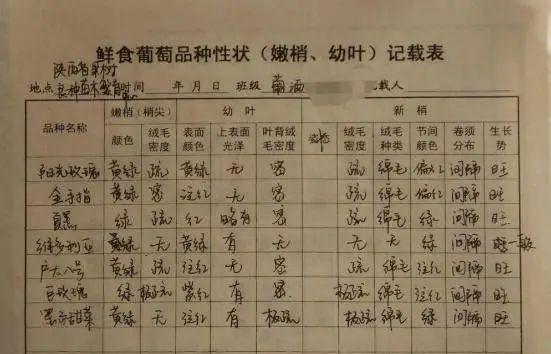 鲜食葡萄品种性状（嫩梢、幼叶）记载表
陕西省果树
地点 良种苗木繁育 时间 年 月 日 班级 葡酒 记载人
品种名称 嫩梢（梢尖） 幼叶 新梢
颜色 绒毛密度 表面颜色 上表面光泽 叶背绒毛密度 姿态 绒毛密度 绒毛种类 节间颜色 卷须分布 生长势
阳光玫瑰 黄绿 疏 黄绿 无 密 疏 绵毛 偏红 间隔 旺
金手指 黄绿 密 注红 无 密 疏 绵毛 偏红 间隔 旺
夏黑 绿 疏 红 略有 密 疏 绵毛 绿 间隔 旺
维多利亚 黄绿 无 黄绿 有 无 无 无 绿 间隔 一般
户太八号 黄绿 疏 注红 无 密 疏 绵毛 注红 间隔 旺
巨玫瑰 绿 极疏 紫红 有 密 极疏 绵毛 注红 间隔 旺
黄绿 无 注红 有 极疏 极疏 绵毛 绿 间隔 旺